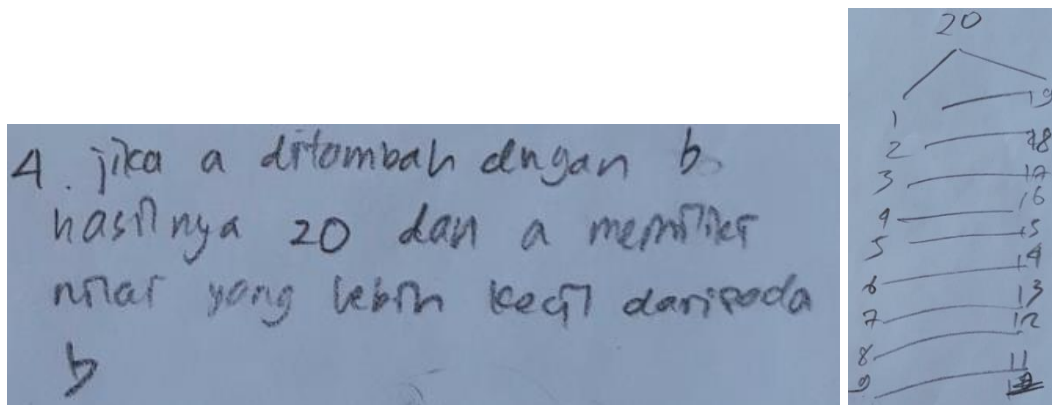 4. jika a ditambah dngan b
hasilnya 20 dan a memiliki
nilai yang lebih kecil daripada
b
20
1 19
2 18
3 17
4 16
5 15
6 14
7 13
8 12
9 11